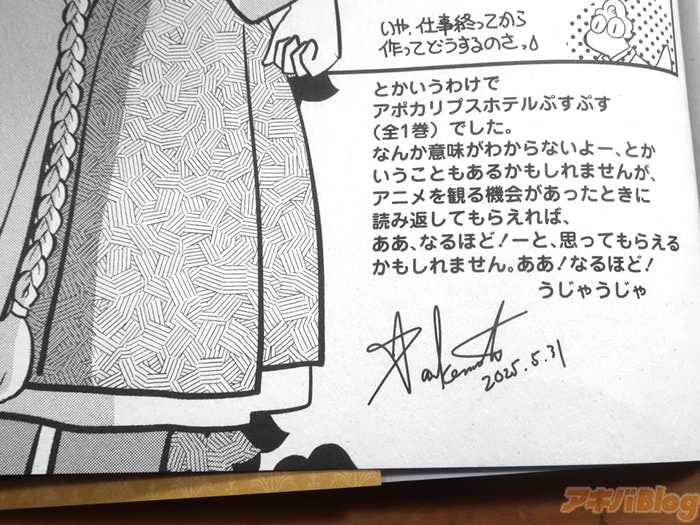 いや、仕事終ってから
作ってどうするのさっ
とかいうわけで
アポカリプスホテルぷすぷす
（全1巻）でした。
なんか意味がわからないよー、とか
いうこともあるかもしれませんが、
アニメを観る機会があったときに
読み返してもらえれば、
ああ、なるほど！ーと、思ってもらえる
かもしれません。ああ！なるほど！
うじゃうじゃ
2025.5.31
アキバBlog